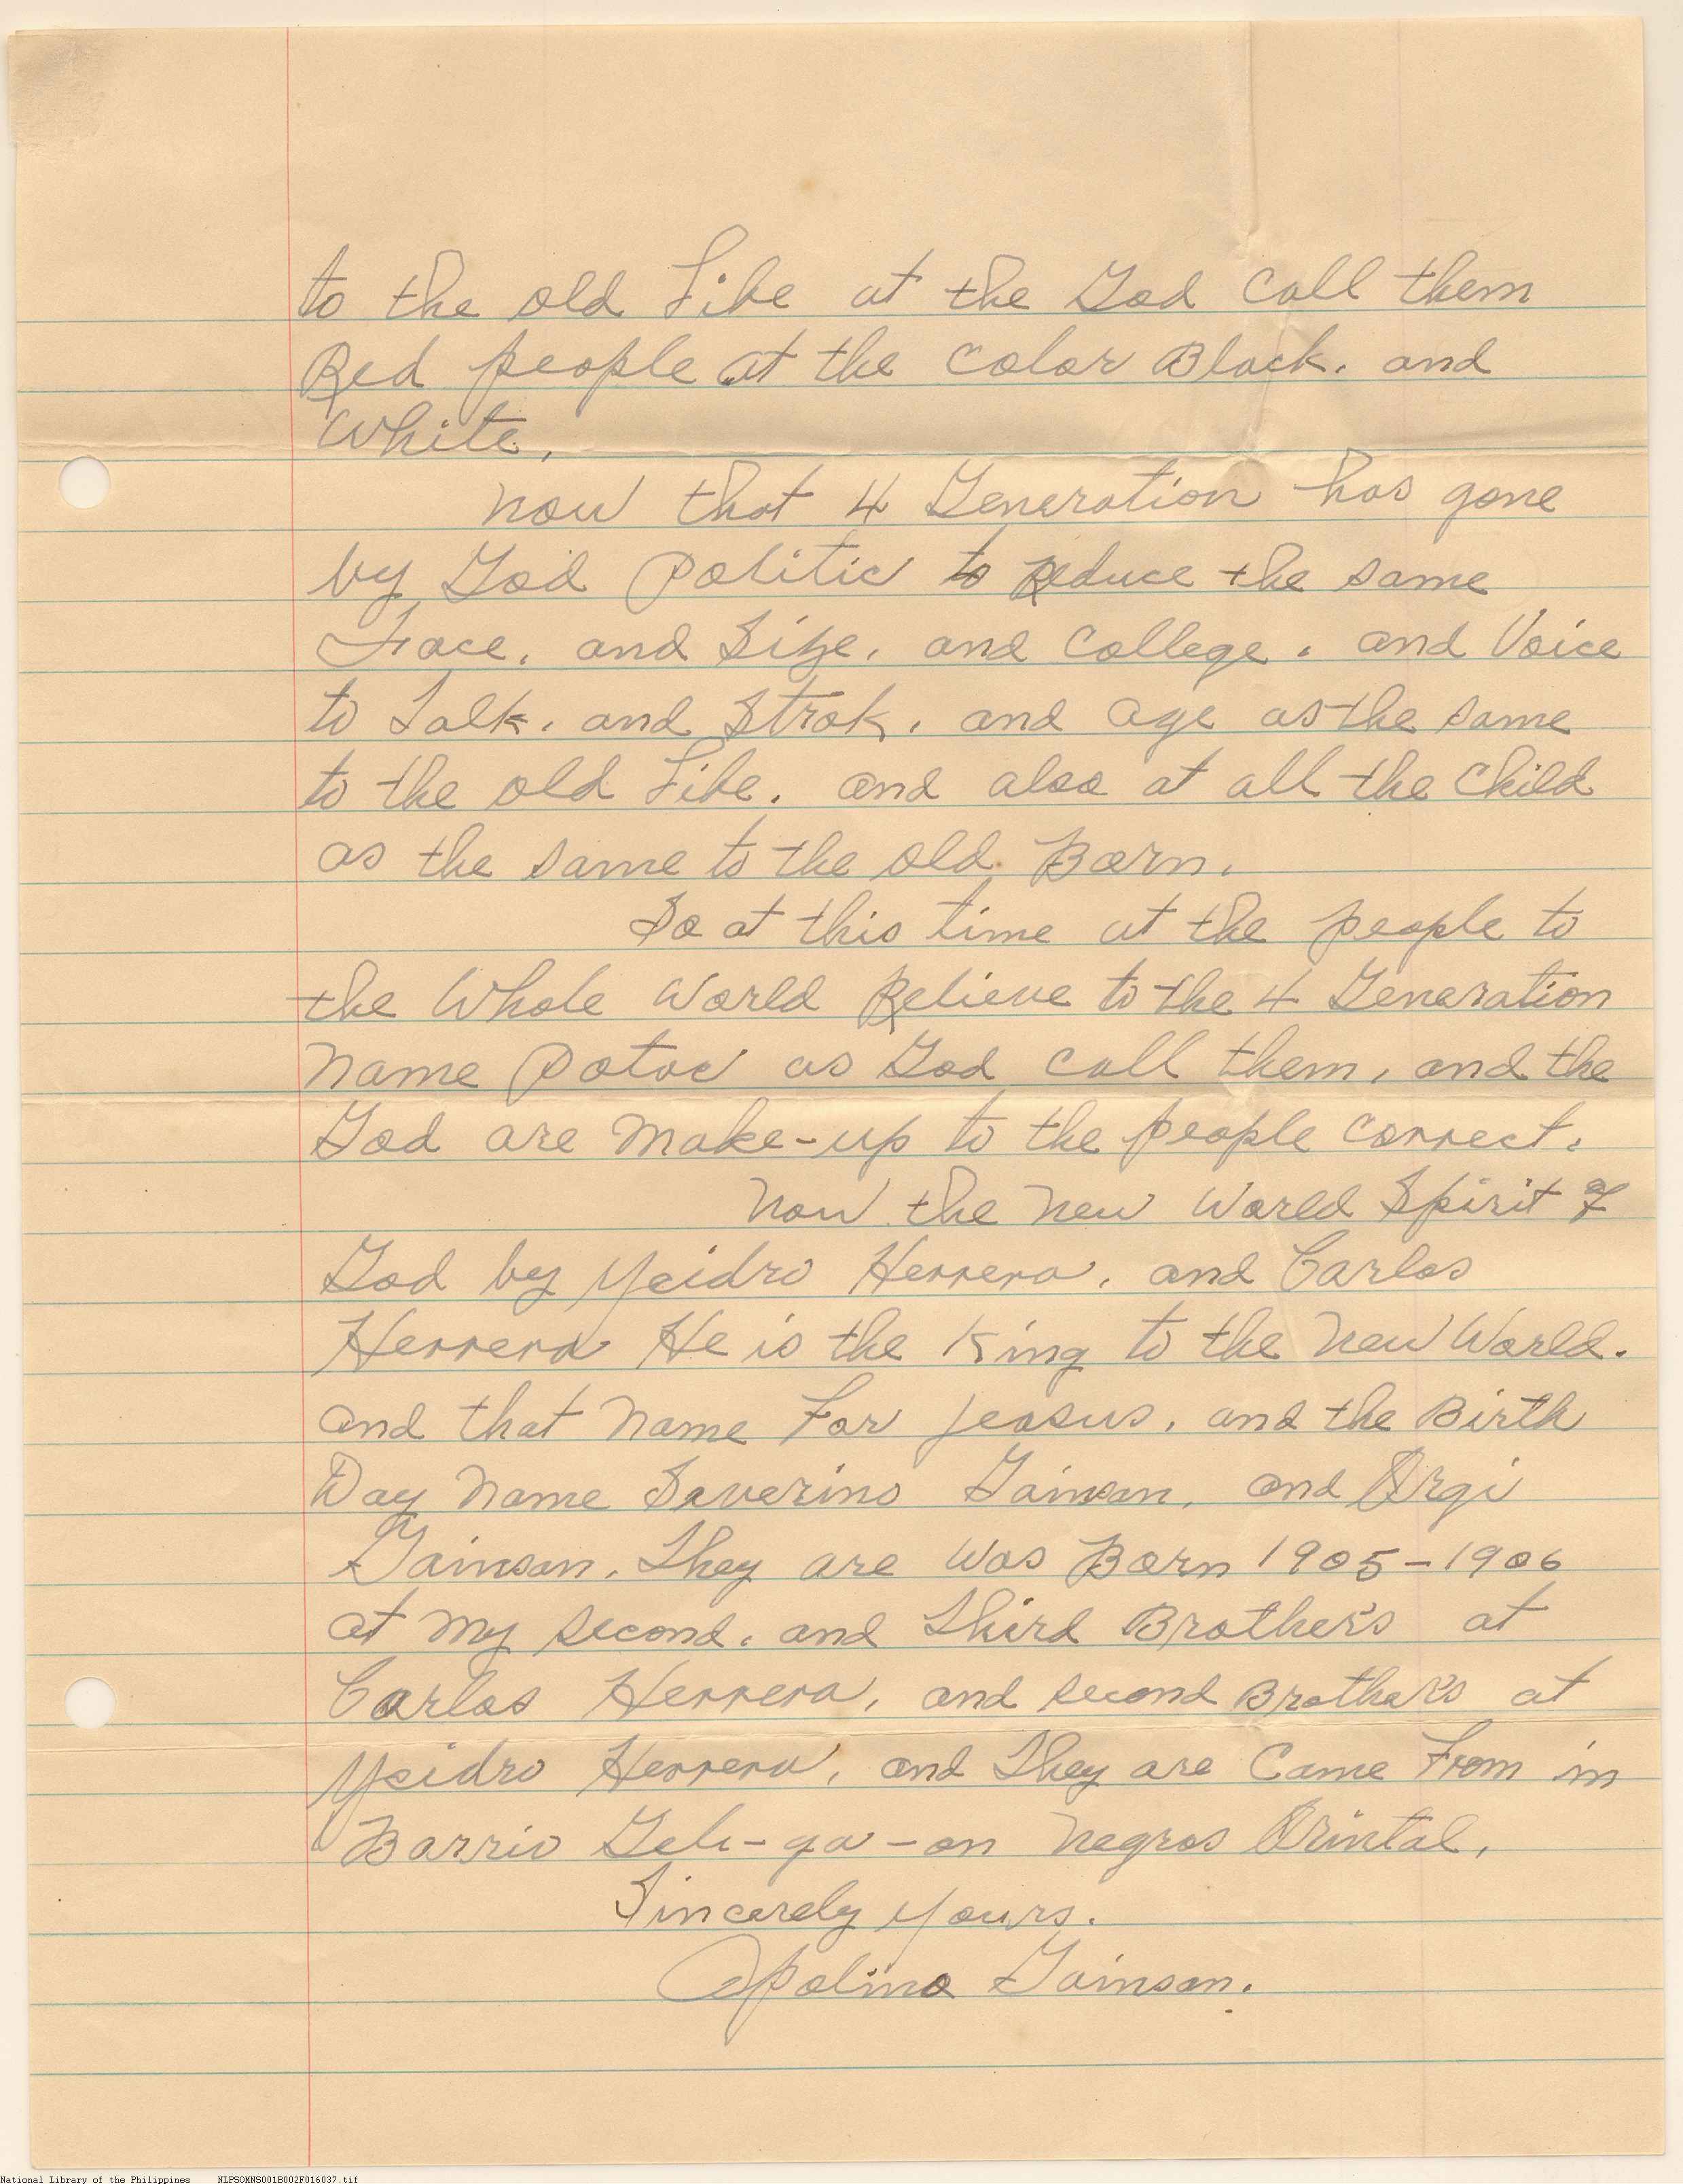 to the old Life at the God call them
Red people at the color Black. and
White.
now that 4 Generation has gone
by God Politic to Reduce the same
Face. and Size. and College. and Voice
to Talk. and Strok. and age as the same
to the old Life. and also at all the child
as the same to the old Born.
So at this time at the people to
the Whole World Relieve to the 4 Generation
name Potoc as God call them, and the
God are make-up to the people correct.
now the new World Spirit of
God by Ysidro Herrera, and Carlos
Herrera He is the King to the new World.
and that name For Jeasus, and the Birth
Day name Saverino Gainsan, and Orgi
Gainsan. They are was Born 1905-1906
at my second. and Third Brother's at
Carlos Herrera, and second Brother's at
Ysidro Herrera, and They are Came From in
Barrio negros Orintal.
Sincerely Yours.
Apolino Gainsan.
National Library of the Philippines NLPSOMNS001B002F016037.tif